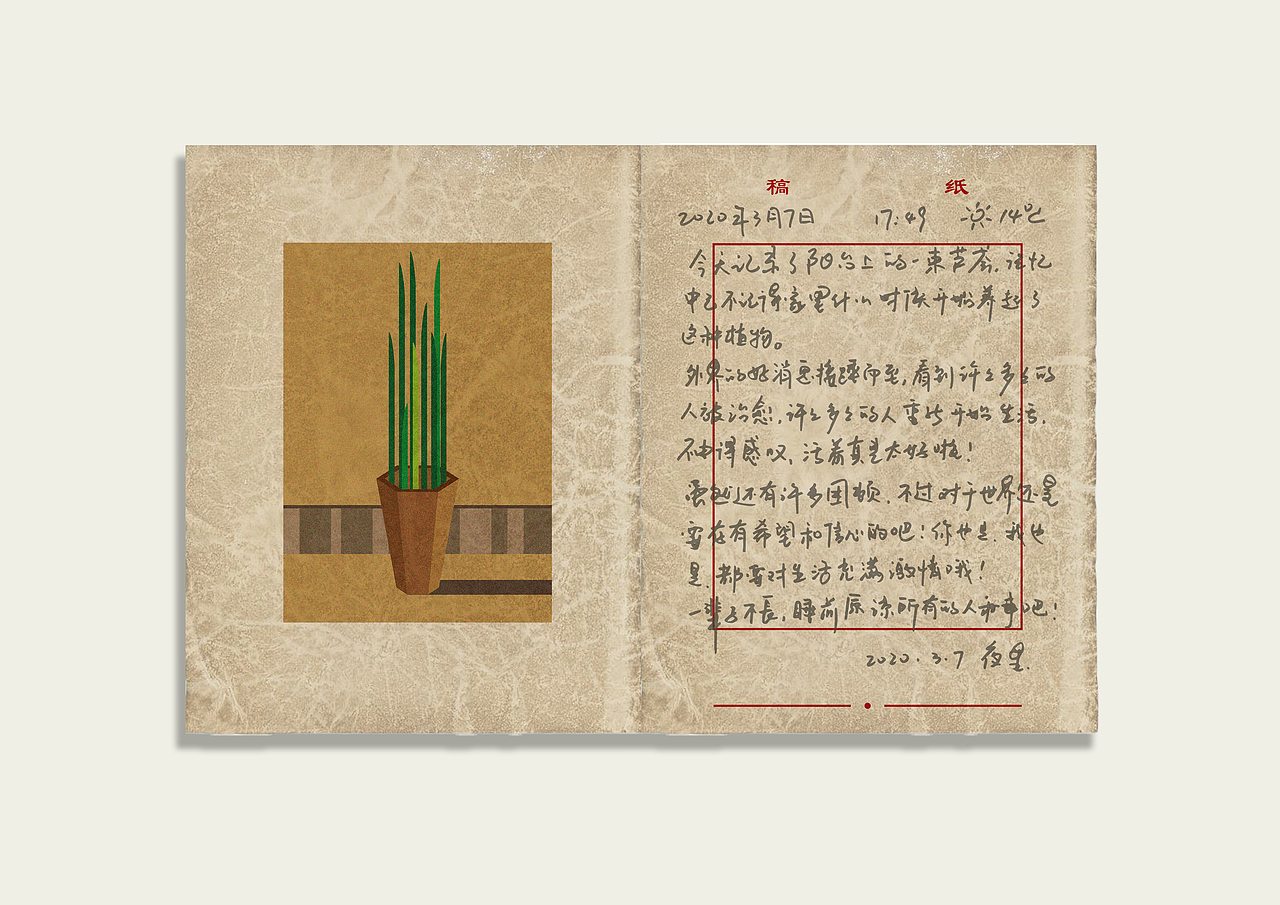 稿 纸
2020年3月7日 17:49 14℃
今天记录了阳台上的一束芦荟,记忆
中已不记得家里什么时候开始养起了
这种植物。
外界的好消息接踵而至,看到许许多多的
人被治愈,许许多多的人重新开始生活,
不由得感叹,活着真是太好啦!
虽然还有许多困顿,不过对于世界还是
要存有希望和信心的吧!你也是,我也
是,都要对生活充满激情哦!
一辈子不长,睡前原谅所有的人和事吧!
2020.3.7 夜里.